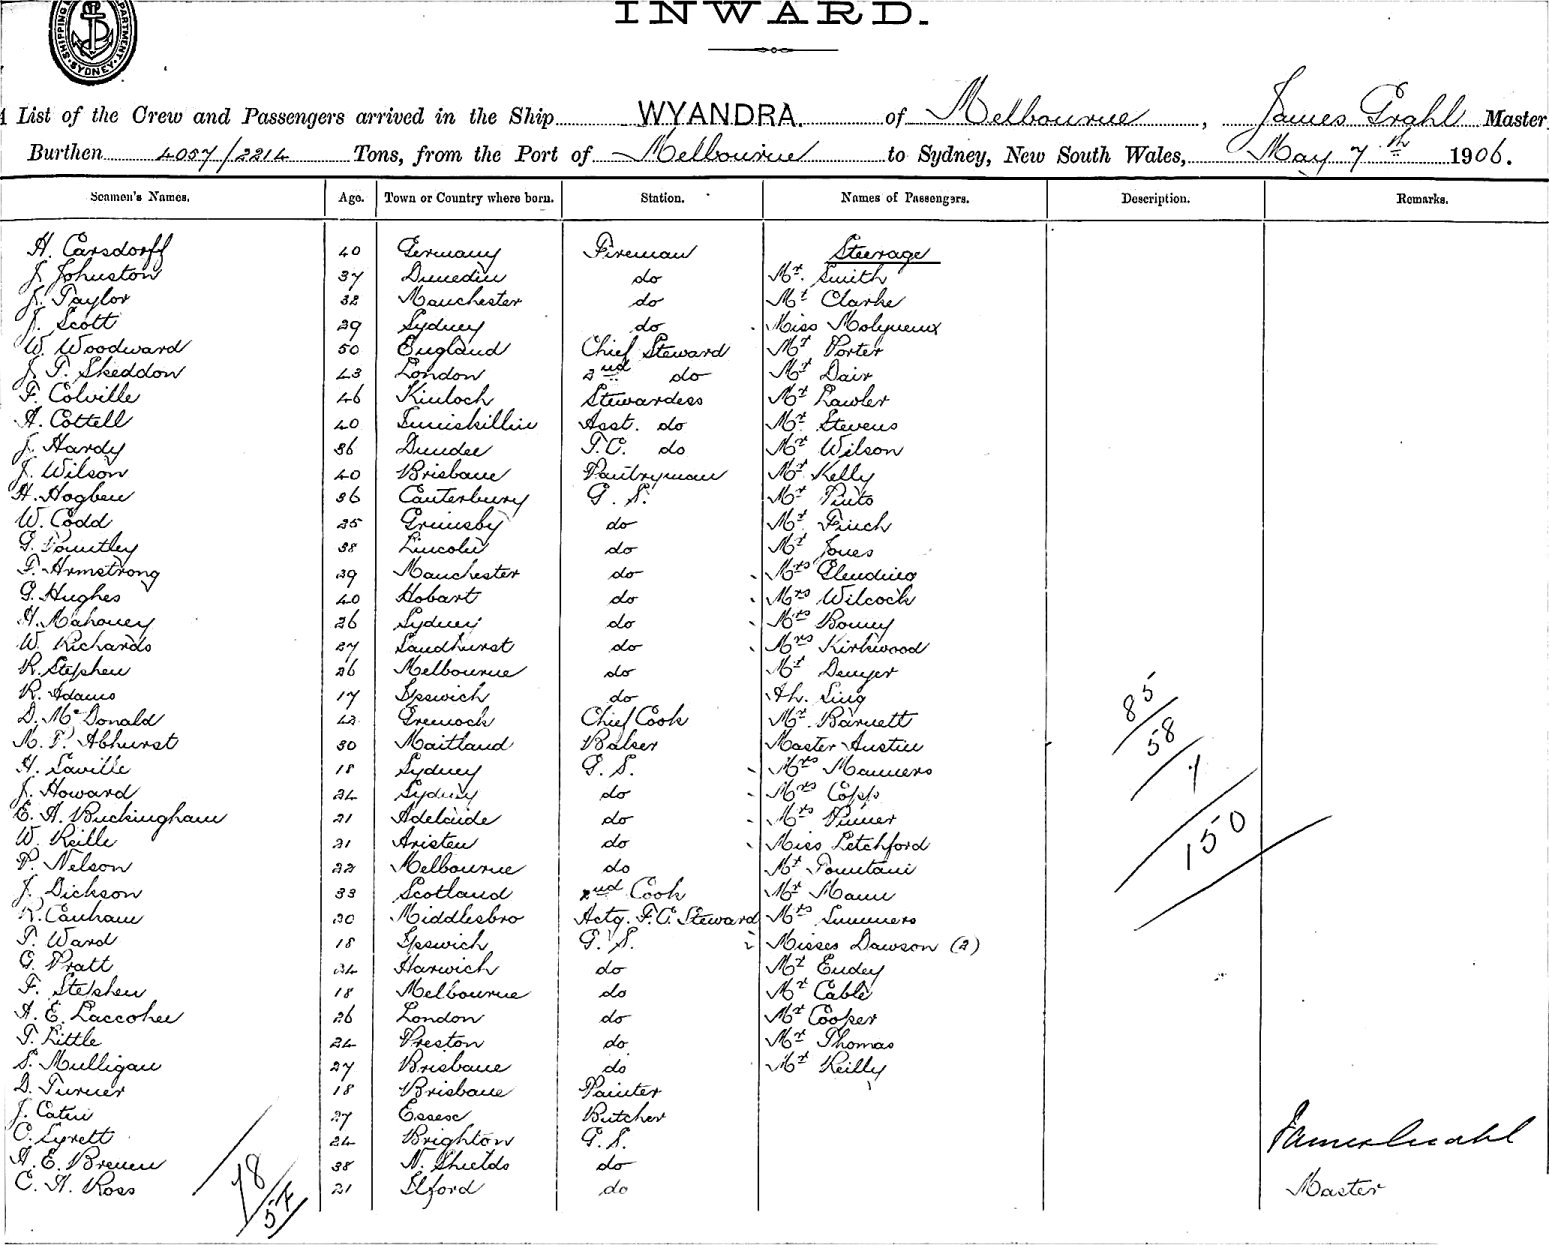 SHIPPING DEPARTMENT SYDNEY
INWARD.
List of the Crew and Passengers arrived in the Ship WYANDRA. of Melbourne, James Grahl Master
Burthen 4057/2214 Tons, from the Port of Melbourne to Sydney, New South Wales, May 7th 1906.
Seamen's Names. Age. Town or Country where born. Station. Names of Passengers. Description. Remarks.
H. Carsdorff 40 Germany Fireman Steerage
J. Johnston 37 Dunedin do Mr. Smith
J. Taylor 32 Manchester do Mr Clarke
J. Scott 29 Sydney do Miss Molyneux
W. Woodward 50 England Chief Steward Mr Porter
J. P. Skeddon 43 London 2nd do Mr Dair
F. Colville 46 Kinloch Stewardess Mr Lawler
A. Cottell 40 Inniskillin Asst. do Mr Stevens
J. Hardy 36 Dundee F.C. do Mr Wilson
J. Wilson 40 Brisbane Pantryman Mr Kelly
H. Hogben 36 Canterbury G. S. Mr Pinto
W. Codd 25 Grimsby do Mr Finch
G. Pountley 38 Lincoln do Mr Jones
F. Armstrong 29 Manchester do Mrs Glendino
G. Hughes 40 Hobart do Mrs Wilcock
H. Mahoney 26 Sydney do Mrs Bonny
W. Richards 27 Sandhurst do Mrs Kirkwood
R. Stephen 26 Melbourne do Mr Denyer
R. Adams 17 Ipswich do Ah. Sing
D. McDonald 42 Greenock Chief Cook Mr. Barnett 85
M. P. Abhurst 30 Maitland Baker Master Austin 58
H. Saville 18 Sydney G. S. Mrs Manners 7
J. Howard 24 Sydney do Mrs Copp
E. A. Buckingham 21 Adelaide do Mrs Pinner 150
W. Reille 21 do Miss Letchford
P. Nelson 22 Melbourne do Mr Fountain
J. Dickson 33 Scotland 2nd Cook Mr Mann
R. Canham 30 Middlesbro Actg. F.C. Steward Mrs Summers
T. Ward 18 Ipswich G. S. Misses Dawson (2)
G. Pratt 24 Harwich do Mr Eudey
F. Stephen 18 Melbourne do Mr Cable
A. E. Laccohee 26 London do Mr Cooper
T. Little 24 Preston do Mr Thomas
S. Mulligan 27 Brisbane do Mr Reilly
D. Turner 18 Brisbane Painter
J. Catin 27 Essex Butcher
C. Lyrett 24 Brighton G. S. James Grahl
A. E. Breuen 38 N. Shields do
C. A. Ross 21 Ilford do Master
78
57